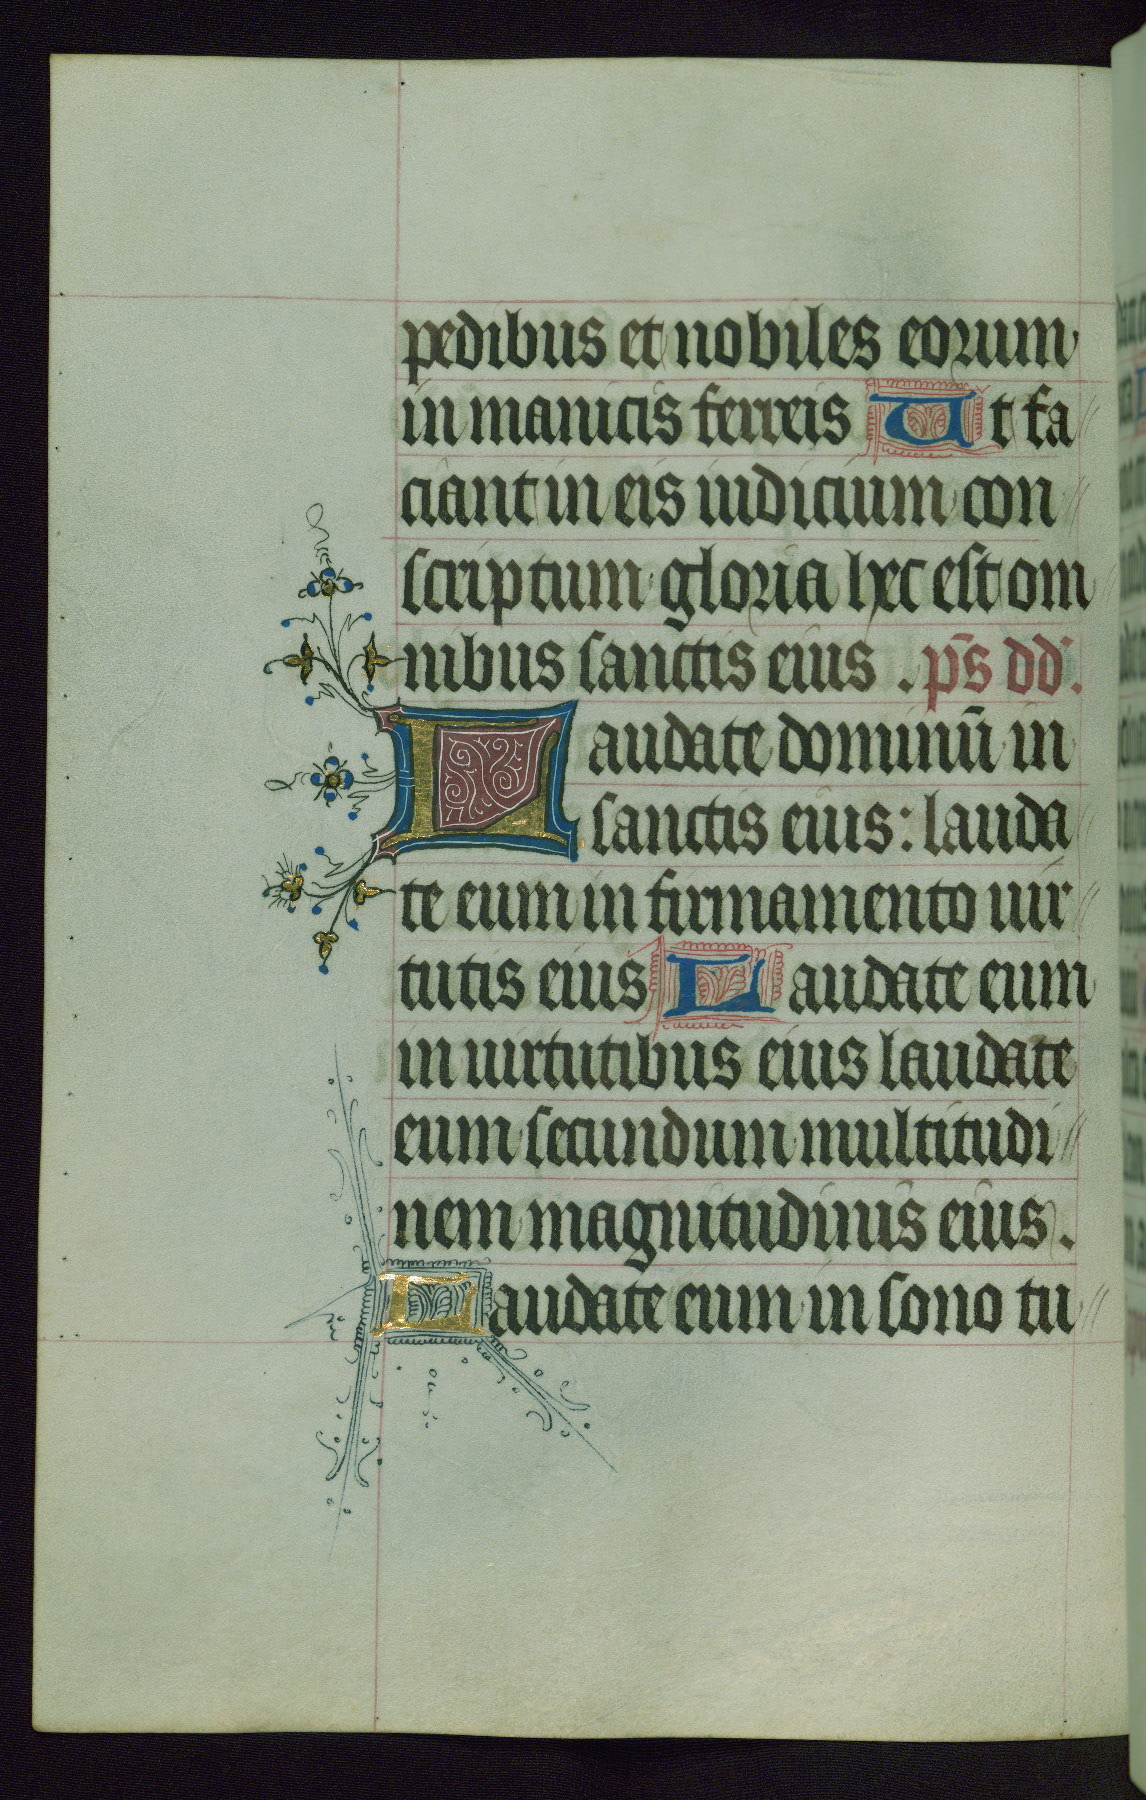 pedibus et nobiles eorum
in manicis ferreis Ut fa
ciant in eis iudicium con
scriptum gloria hec est om
nibus sanctis eius . ps̄ dd.
Laudate dominū in
sanctis eius: lauda
te eum in firmamento uir
tutis eius Laudate eum
in uirtutibus eius laudate
eum secundum multitudi
nem magnitudinis eius.
Laudate eum in sono tu